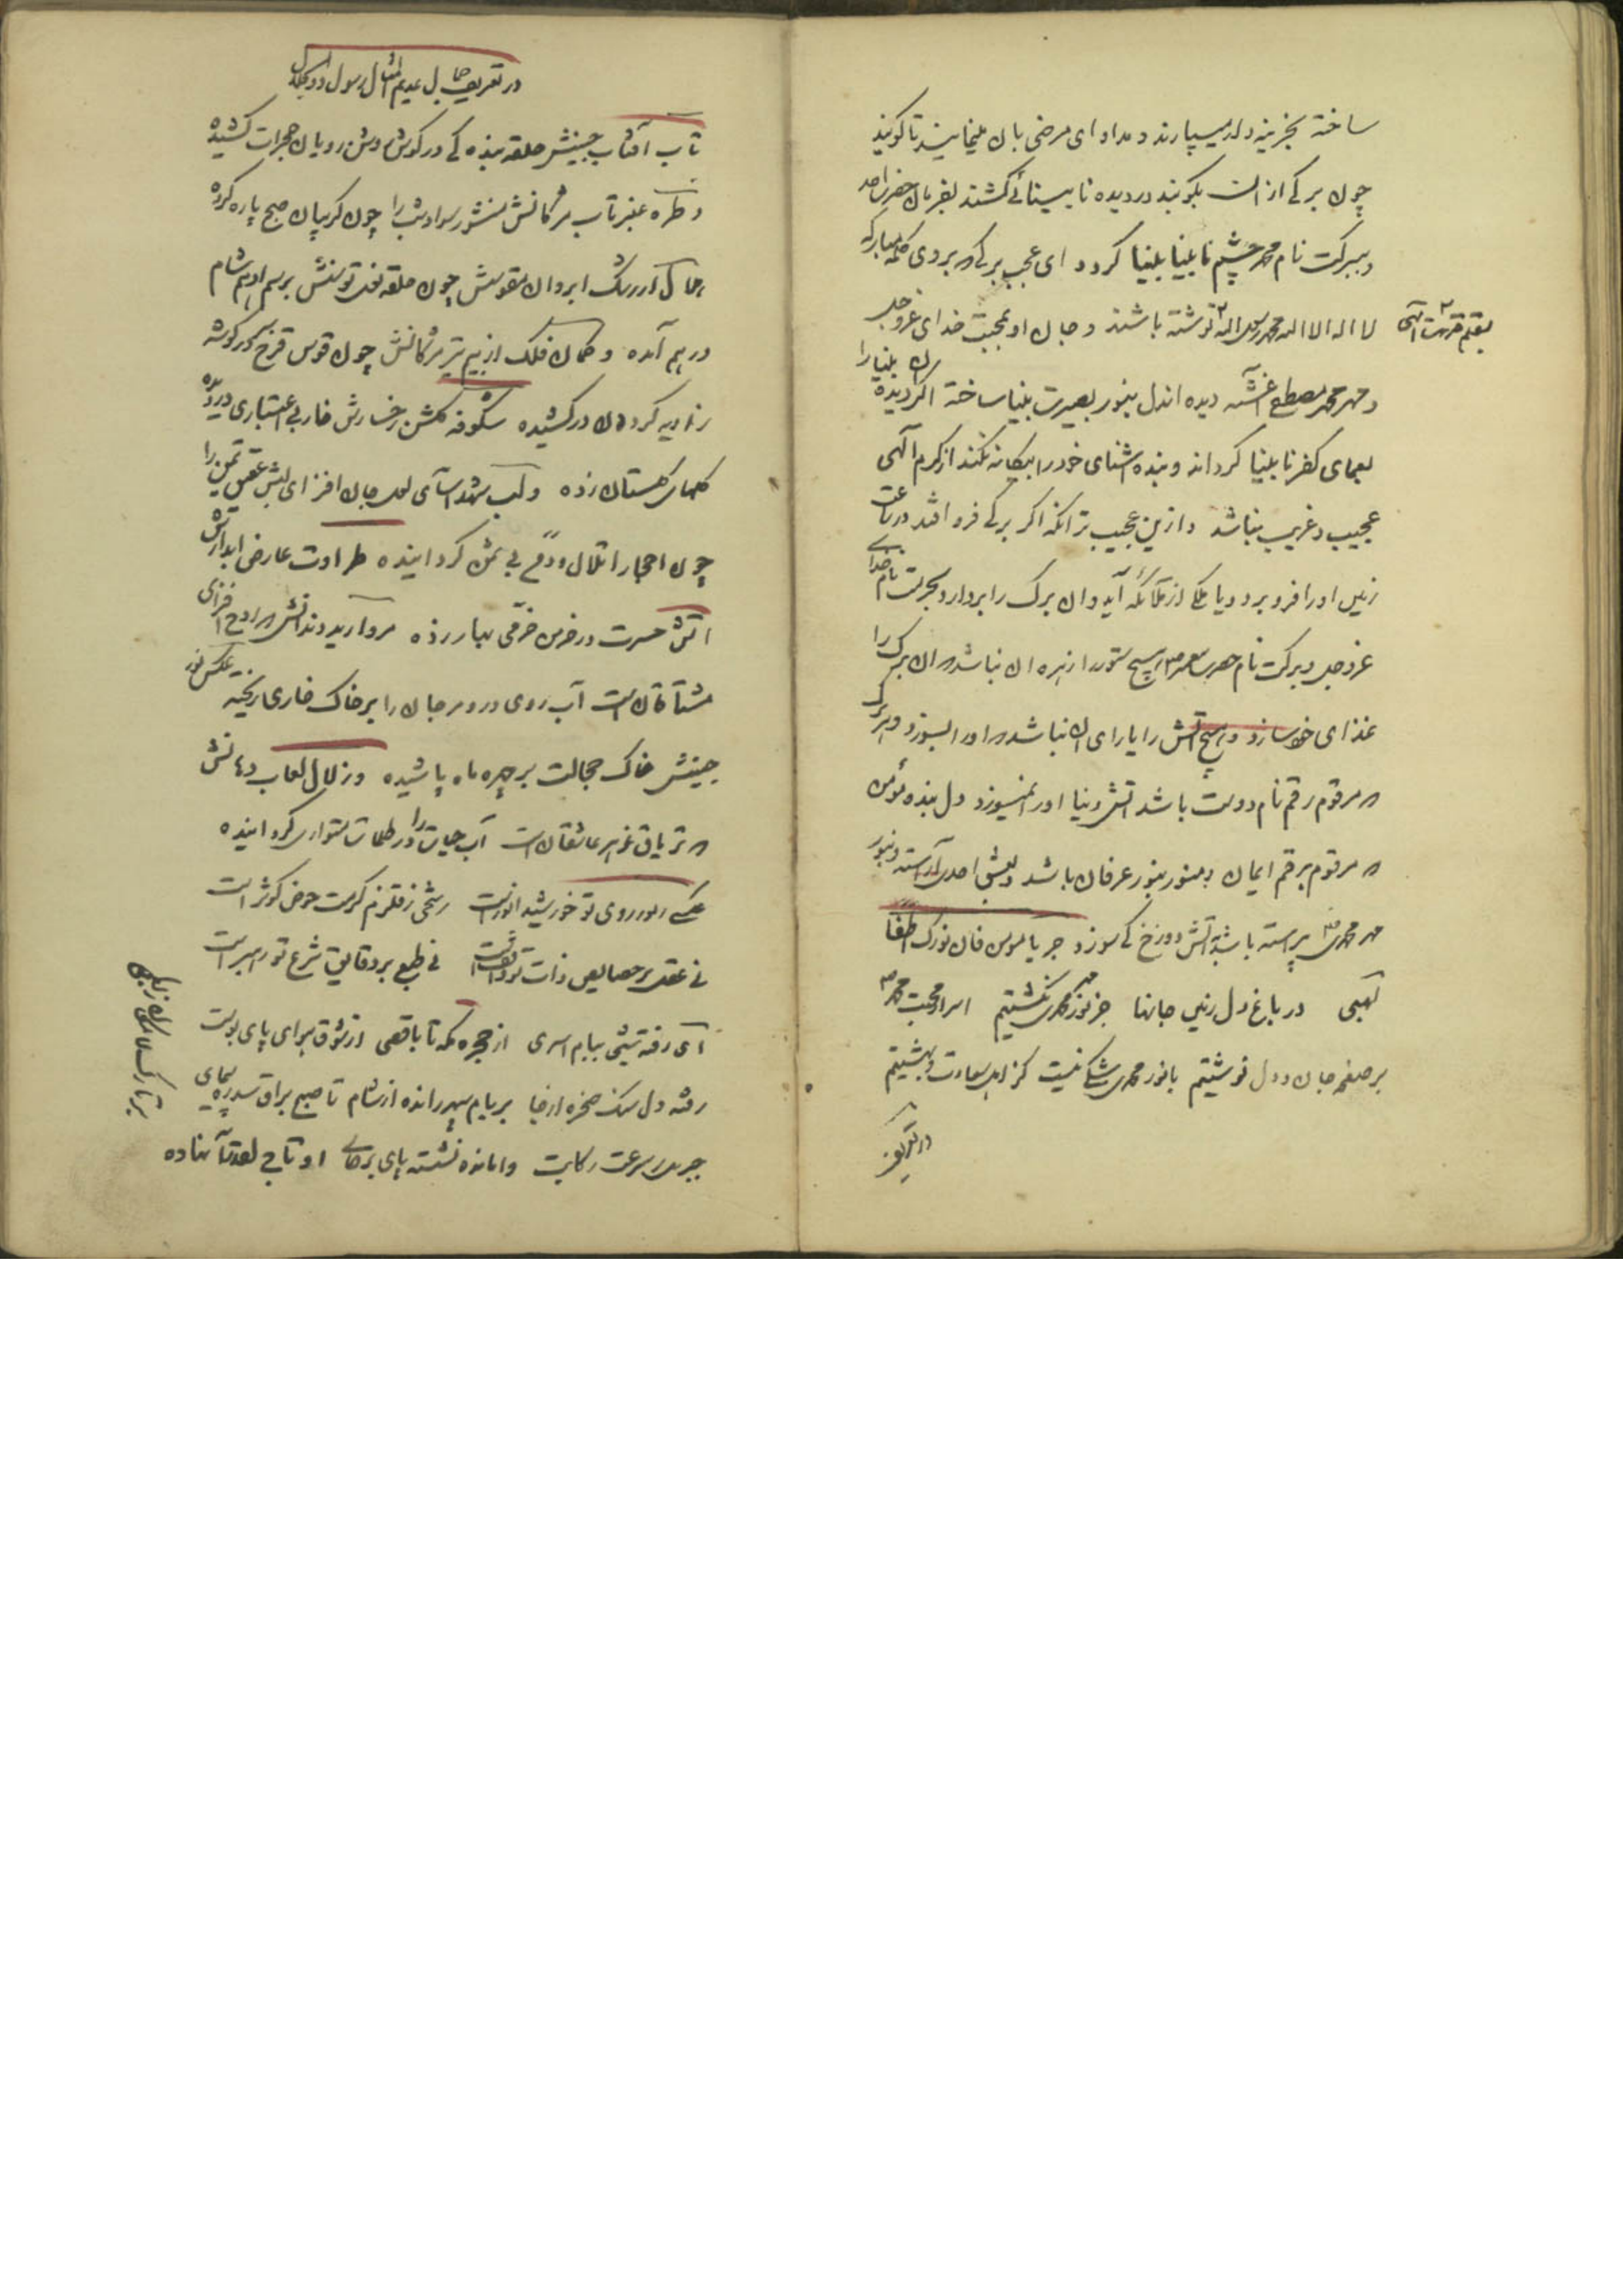 ساخته بخزینه دار میسپارند و مداوای مرضی بان مینمایند تا گویند
چون برکی از انت بکوبند در دیده نابینائی کشند بفرمان حضرت احد
و ببرکت نام محمد چشم نابینا بینا کردد ای عجب برکی که بروی کلمه مبارکه
بقلم قدرت الهی
لا اله الا الله محمد رسول الله نوشته باشند و جان او بمحبت خدای عزوجل
و مهر محمد مصطفی آغشته دیده اندل بنور بصیرت بینا ساخته اگر دیده
بعمای کفر نابینا کرداند و بنده اشنای خود را بیکانه نکند از کرم الهی
عجیب و غریب نباشد و ازین عجیب تر انکه اکر برکی فرو افتد در ساعت
زمین اورا فرو برد و یا ملکی از ملائکه آید و ان برک را بردارد بحرمت نام خدا
عزوجل و برکت نام هیچ ستور را زهره ان نباشد که ان برک را
غذای خود سازد و هیچ آتش را یارای ان نباشد که اورا بسوزد
که مرقوم رقم نام دوست باشد اتش دنیا اورا نمیسوزد دل بنده مؤمن
که مرقوم برقم ایمان و منور بنور عرفان باشد و بعشق احدی آراسته و بنور
مهر محمدی پیراسته باشد آتش دوزخ کی سوزد جز یا مومن فان نورک اطفا
لهبی در باغ دل زمین جانها جز نور محمدی نکشتیم اسرار محبت محمد
بر صفحه جان و دل نوشتیم با نور محمدی شکی نیست کز اهل سعادت و بهشتیم
در تعریف
در تعریف جمال عدیم المثال رسول
تاب آفتاب جبینش حلقه بنده کی در کوش وش رویان حجرات کشیده
و طره عنبر تاب مژکانش منشور سواد شب را چون کریبان صبح پاره کرده
هلال از رشک ابروان مقوسش چون حلقه بر سم ادهم شام
در هم آمده و کمان فلک از بیم تیر مژکانش چون قوس قزح در کوشه
زاویه کردون در کشیده شکوفه کلشن رخسارش خار بی اعتباری در دیده
کلهای کلستان زده و لب شهد آسای لعل جان افزای لبش عقیق یمن را
چون احجار اتلال و دمن بی ثمن کردانیده طراوت عارض ابدارش
اتش حسرت در خرمن خرمی بهار زده مروارید دندانش که روح افزای
مشتاقان است آب روی در و مرجان را بر خاک خاری ریخته عکس نور
جبینش خاک خجالت بر چهره ماه پاشیده و زلال لعاب دهانش
که تریاق زهر عاشقان است آب حیات را در ظلمات متواری کردانیده
عکسی ز نور روی تو خورشید انورست رشحی ز قلزم کرمت حوض کوثر است
نی عقل بر خصایص ذات تو واقفست نی طبع بر دقایق شرع تو رهبر است
ای رفته شبی ببام اسری از حجره مکه تا باقصی از شوق برای پای بوست
رفته دل سنک صخره از جا بر بام سپهر رانده از شام تا صبح براق سدره پیمای
جبریل ز سرعت رکابت وامانده نشسته پای بر جای او تاج لعمرک نهاده
بر تارک